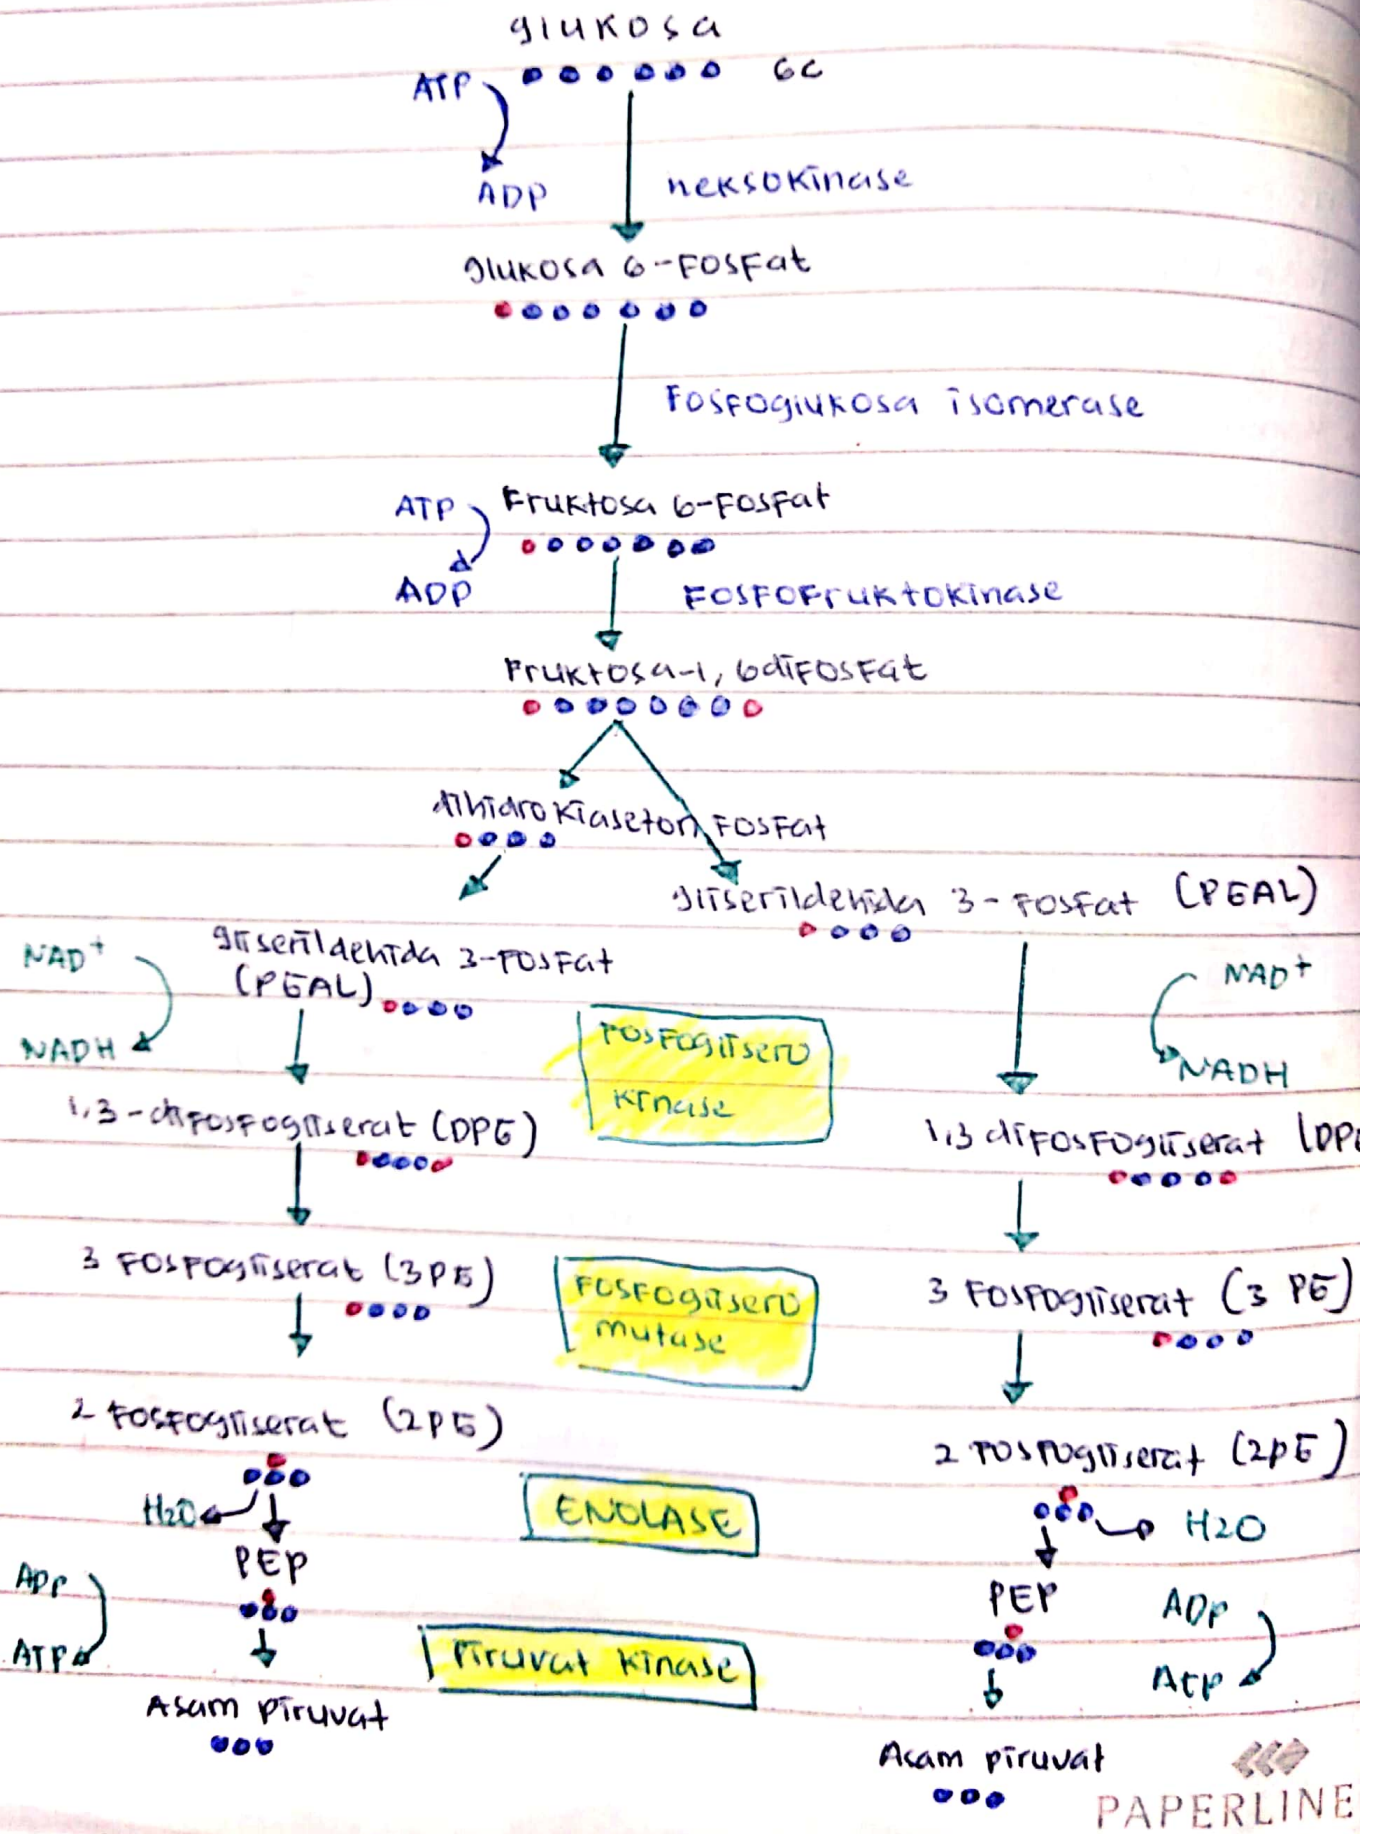 glukosa
ATP 6C
ADP heksokinase
glukosa 6-Fosfat
Fosfoglukosa isomerase
ATP Fruktosa 6-Fosfat
ADP Fosfofruktokinase
Fruktosa-1, 6difosfat
dihidrokiaseton Fosfat
gliserildehida 3-Fosfat (PGAL)
NAD+ gliserildehida 3-Fosfat NAD+
(PGAL)
NADH Fosfoglisero NADH
kinase
1,3-difosfogliserat (DPG) 1,3 difosfogliserat (DPG
3 Fosfogliserat (3PG) Fosfoglisero 3 Fosfogliserat (3 PG)
mutase
2 Fosfogliserat (2PG) 2 Fosfogliserat (2PG)
H2O ENOLASE H2O
PEP PEP
ADP ADP
ATP Piruvat kinase ATP
Asam piruvat Asam piruvat
PAPERLINE